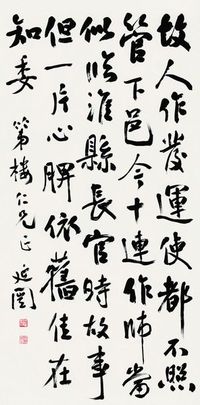 故人作發運使都不照
管下邑今十連作帥當
似臨淮縣長官時故事
但一片心脾依舊佳在
知委
第樓仁兄正 延闓